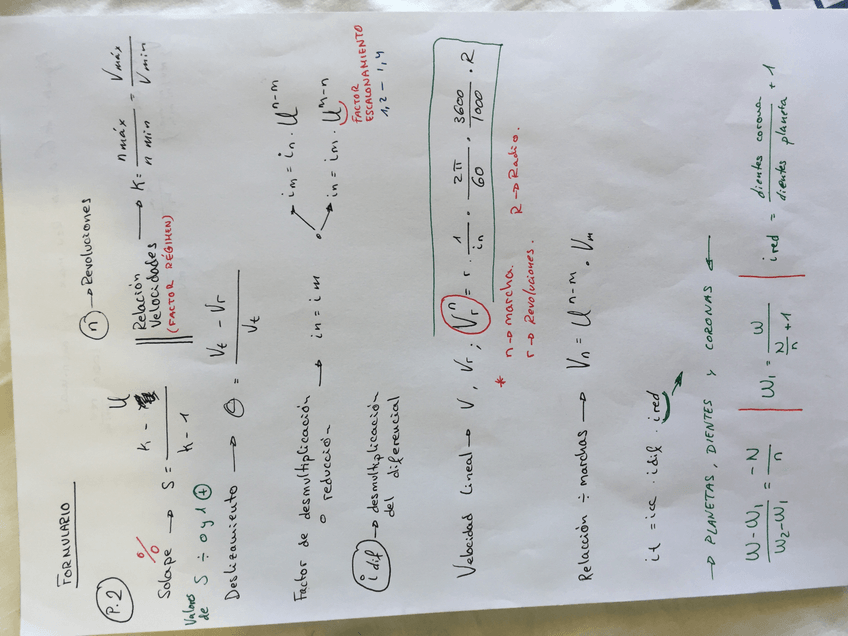 FORMULARIO
P.2
n → Revoluciones
Solape % → S = (K - U) / (K - 1)
Valores de S ÷ 0 y 1 +
Relación Velocidades → K = n máx / n min = V máx / V min
(FACTOR RÉGIMEN)
Deslizamiento → θ = (Vt - Vr) / Vt
Factor de desmultiplicación o reducción → in = im
im = in · U^n-m
in = im · U^m-n
FACTOR ESCALONAMIENTO
1,2 - 1,4
i dif → desmultiplicación del diferencial
Velocidad lineal → V, Vr ; V_r^n = r · 1/in · 2π/60 · 3600/1000 · R
* n → marcha.
r → Revoluciones. R → Radio.
Relación ÷ marchas → Vn = U^n-m · Vm
it = icc · idif · ired
→ PLANETAS, DIENTES Y CORONAS ←
(W - W1) / (W2 - W1) = -N / n | W1 = W / (N/n + 1) | i red = dientes corona / dientes planeta + 1